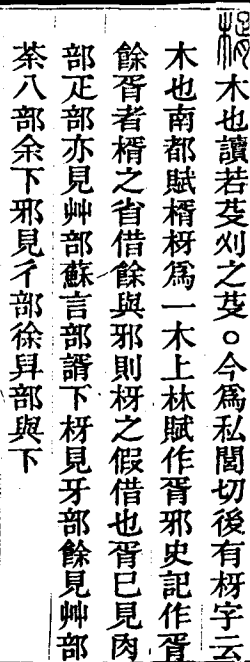 楈木也讀若芟刈之芟。今爲私閭切後有枒字云
木也南都賦楈枒爲一木上林賦作胥邪史記作胥
餘胥者楈之省借餘與邪則枒之假借也胥巳見肉
部疋部亦見艸部蘇言部諝下枒見牙部餘見艸部
荼八部余下邪見彳部徐舁部與下